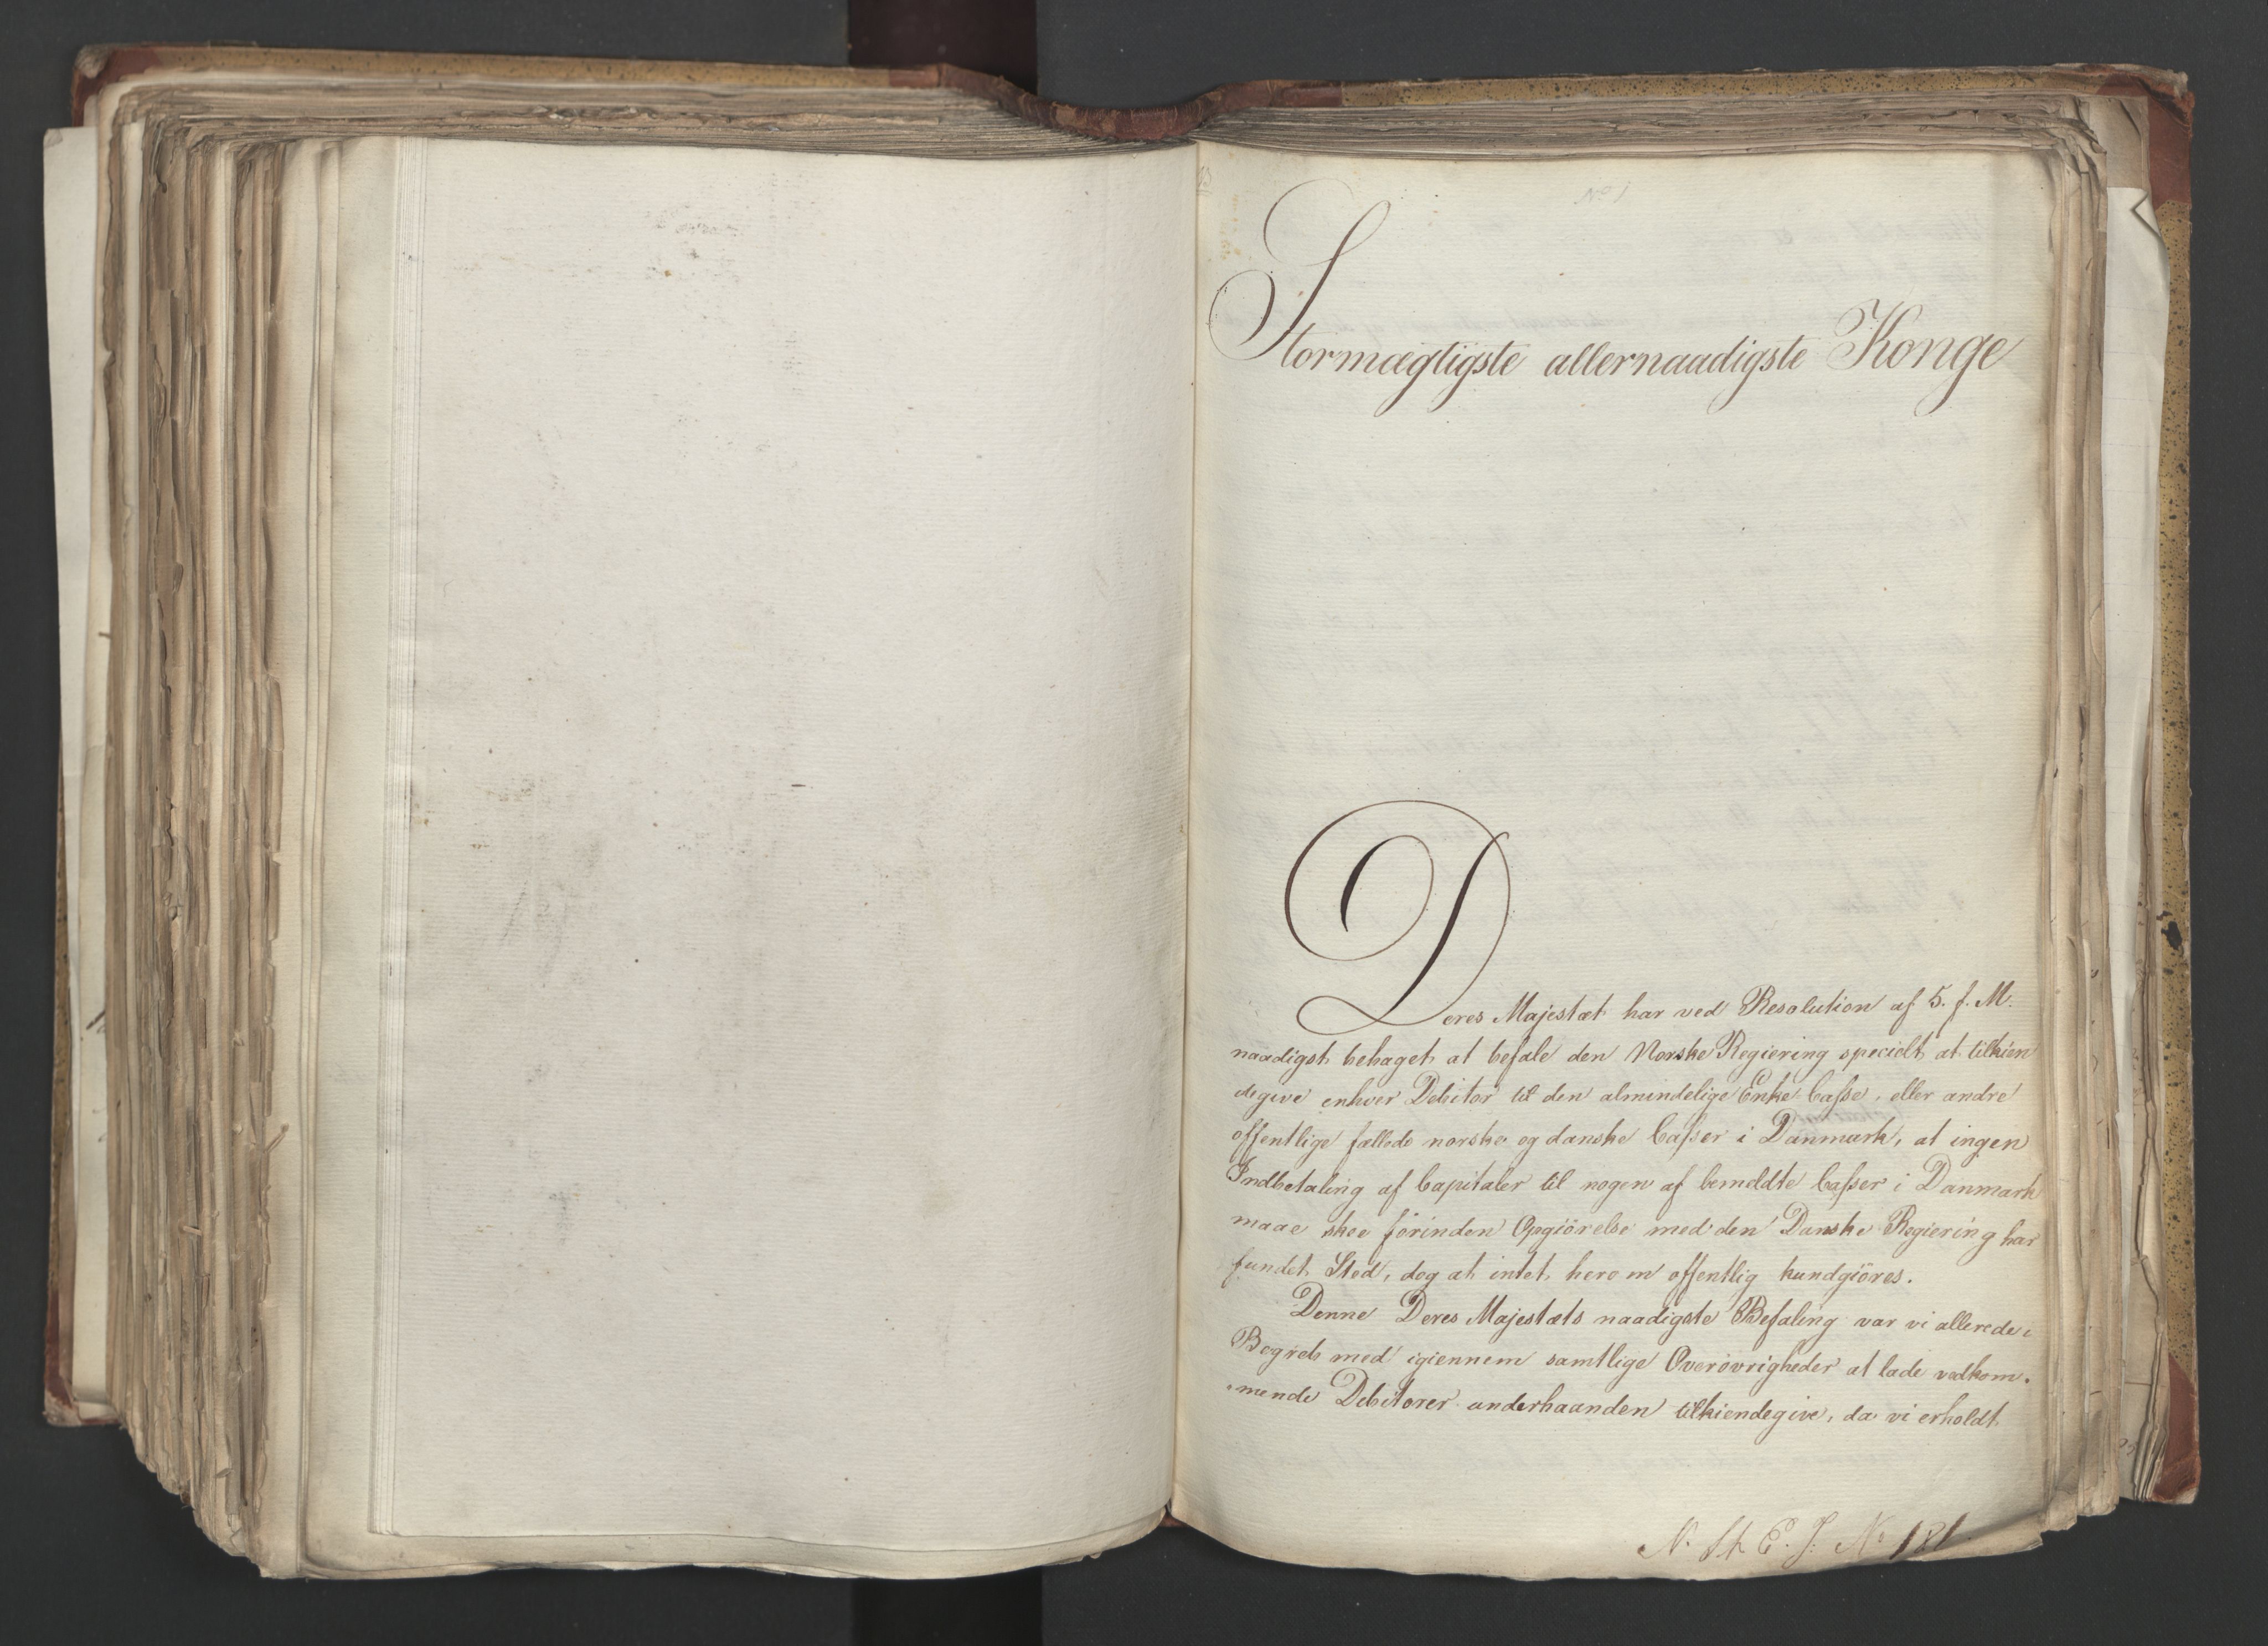 No 1
Stormægtigste allernaadigste Konge
Deres Majestæt har ved Resolution af 5. f. M.
naadigst behaget at befale den Norske Regiering specielt at tilkien
degive enhver Debitor til den almindelige Enke Casse, eller andre
offentlige fælleds norske og danske Casser i Danmark, at ingen
Indbetaling af Capitaler til nogen af bemeldte Casser i Danmark
maae skee førinden Opgiörelse med den Danske Regiering har
fundet Sted, dog at intet herom offentlig kundgiöres.
Denne Deres Majestæts naadigste Befaling var vi allerede i
Begreb med igiennem samtlige Overøvrigheder at lade vedkom-
mende Debitorer underhaanden tilkiendegive, da vi erholdt
N. St. E. J. No 181